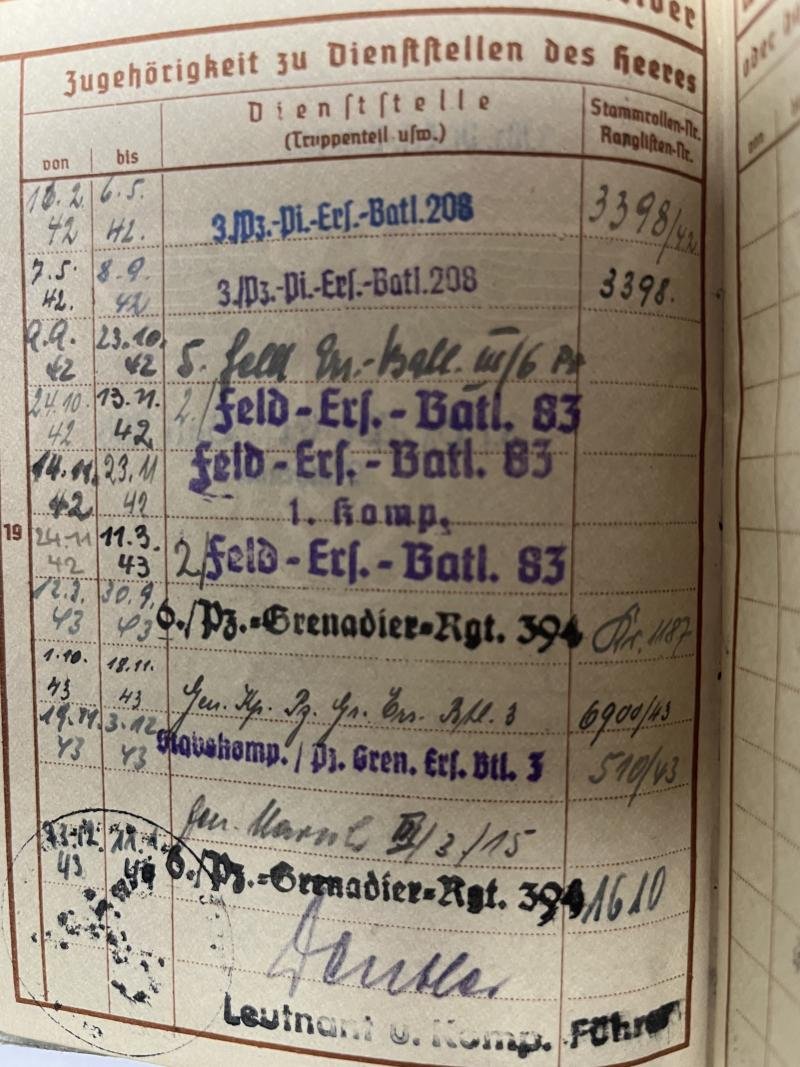 Zugehörigkeit zu Dienststellen des Heeres
von bis Dienststelle (Truppenteil usw.) Stammrollen-Nr. Ranglisten-Nr.
6.5. 42 42. 3./Pz.-Pi.-Ers.-Batl. 208 3398/42
7.5. 42. 8.9. 42 3./Pz.-Pi.-Ers.-Batl. 208 3398.
9.9. 42 23.10. 42 5. Feld Ers.-Batl. III/6
24.10. 42 13.11. 42 2./ Feld-Ers.-Batl. 83
14.11. 42 23.11 42 Feld-Ers.-Batl. 83
1. Komp.
19 24.11 42 11.3. 43 2/ Feld-Ers.-Batl. 83
12.3. 43 30.9. 43 6./Pz.-Grenadier-Rgt. 394 1187
1.10. 43 18.11. 43 Gen. Kp. Pz. Gr. Ers. Btl. 3 6900/43
19.11. 43 3.12. 43 Stabskomp. / Pz. Gren. Ers. Btl. 3 510/43
Gen. III/3/15
43 6./Pz.-Grenadier-Rgt. 394 1610
Leutnant u. Komp. Führer